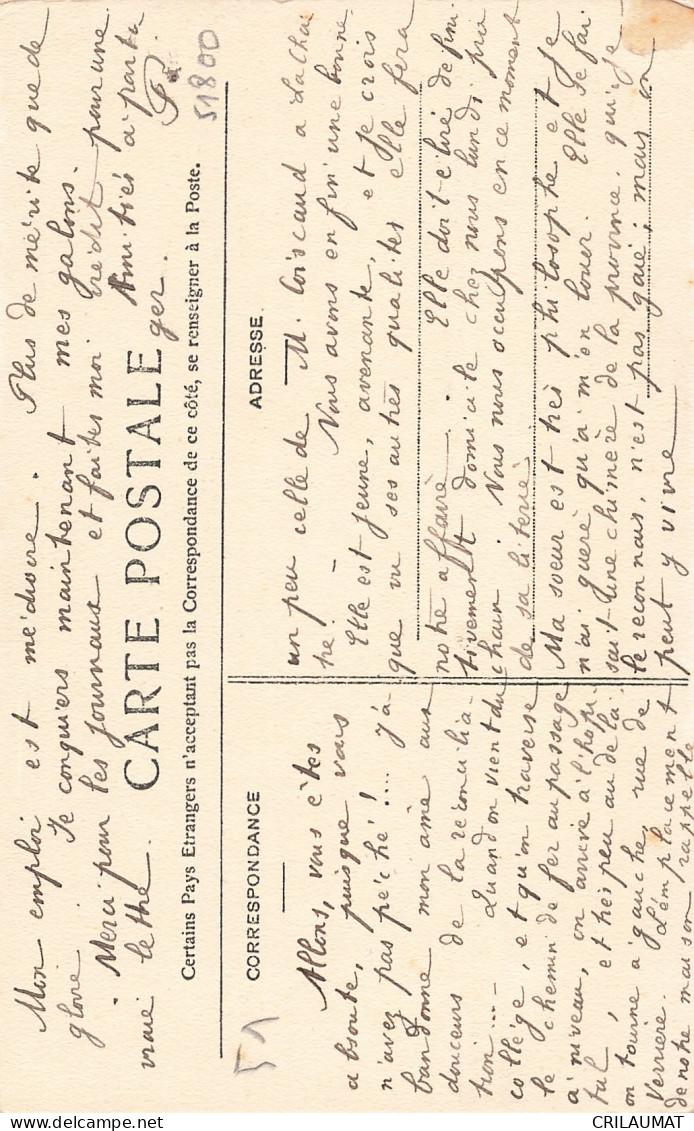 Allons, vous êtes
absoute, puisque vous
n'avez pas péché!.... j'a-
bandonne mon âme aux
douceurs de la réconcilia-
tion... - Quand on vient du
collège, et qu'on traverse
le chemin de fer au passage
à niveau, on arrive à l'hôpi-
tal, et très peu au delà
on tourne à gauche, rue de
Verrière. L'emplacement
de notre maison rappelle
un peu celle de M. Coiscaud a La Châ
tre. - Nous avons enfin une bonne.
Elle est jeune, avenante, et je crois
que vu ses autres qualités elle fera
notre affaire. - Elle doit élire défini-
tivement domicile chez nous lundi pro
chain. Nous nous occupons en ce moment
de sa literie.
Ma soeur est très philosophe et je
n'ai guère qu'à m'en louer. Elle se fai-
sait une chimère de la province, qui, je
le reconnais, n'est pas gaie; mais on
peut y vivre
Mon emploi est médiocre. Plus de mérite que de
gloire. Je conquiers maintenant mes galons.
Merci pour les journaux et faites moi crédit pour une
vraie lettre. Amitiés à parta
ger.
P.
51800
CARTE POSTALE
Certains Pays Etrangers n'acceptant pas la Correspondance de ce côté, se renseigner à la Poste.
CORRESPONDANCE
ADRESSE
51
www.delcampe.net
CRILAUMAT